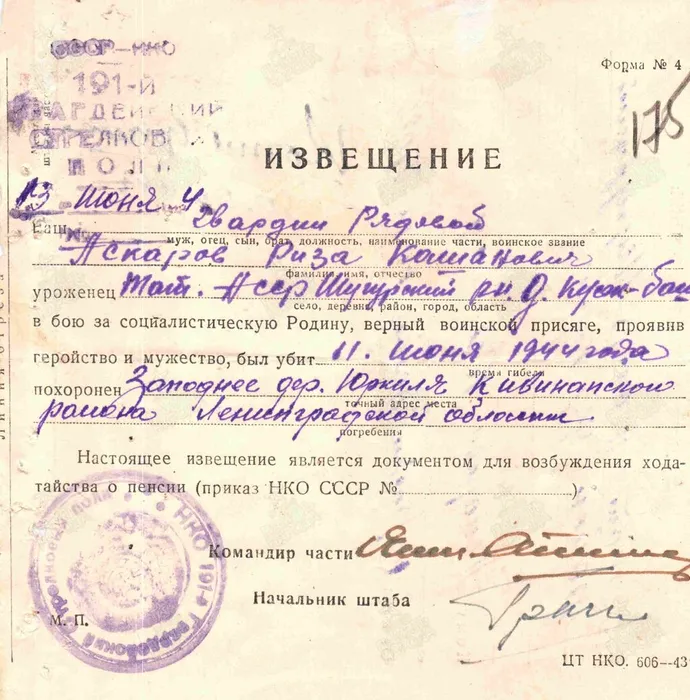 СССР–НКО
Форма № 4
191-й
ГВАРДЕЙСКИЙ
СТРЕЛКОВ
ПОЛК
175
ИЗВЕЩЕНИЕ
13 Июня 4
№
Ваш Гвардии Рядовой
муж, отец, сын, брат, должность, наименование части, воинское звание
Аскаров Риза Кашанович
фамилия, имя, отчество
уроженец Тат. АССР Шугурский рн. д. Куак-баш
село, деревня, район, город, область
в бою за социалистическую Родину, верный воинской присяге, проявив
геройство и мужество, был убит 11. Июня 1944 года
время гибели
похоронен Западнее дер. Юнкиля Кивинапского
точный адрес места
района Ленинградской области
погребения
Настоящее извещение является документом для возбуждения хода-
тайства о пенсии (приказ НКО СССР №)
Командир части
Начальник штаба
М. П.
НКО 191-й Гвардейский Стрелковый полк
ЦТ НКО. 606—43
линия отреза